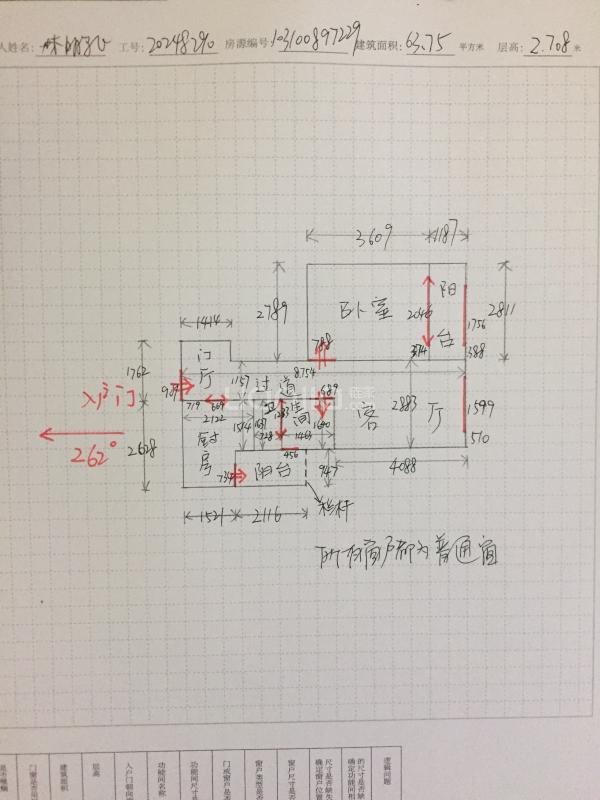 人姓名: 工号: 20248290 房源编号: 103100897229 建筑面积: 63.75 平方米 层高: 2.708 米
3609 1187
2789
卧室
阳台
2046
374
1756
388
2811
1414
788
门厅
1762
过道
8754
1157
入户门
262°
719 669
689
卫生间
客厅
2883
1599
510
2122
1514
728
1463
1640
2628
厨房
456
阳台
947
4088
1521
2116
栏杆
所有窗户都为普通窗
门窗是否
建筑面积
层高
入户门朝向
功能间名称
功能间尺寸是
门或窗户是
窗户类型是否
窗户尺寸是否
尺寸是否缺失
确定窗户位置
的尺寸是否缺
确定功能间相
逻辑问题